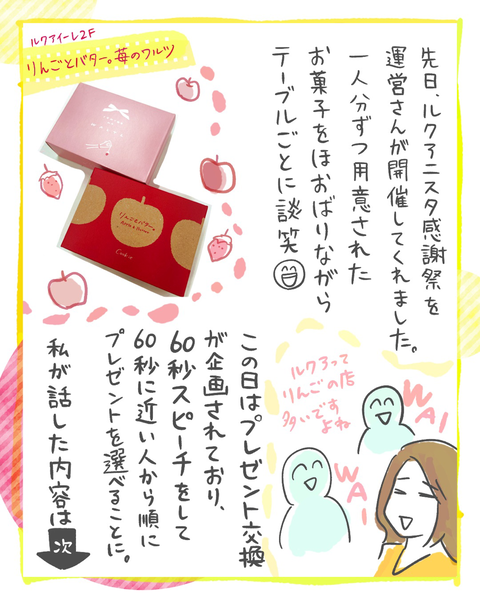 ルクアイーレ2F
りんごとバター。苺のフルツ
先日、ルクアニスタ感謝祭を
運営さんが開催してくれました。
一人分ずつ用意された
お菓子をほおばりながら
テーブルごとに談笑
りんごとバター。
ルクアって
りんごの店
多いです
よね
WAI
WAI
この日はプレゼント交換
が企画されており、
60秒スピーチをして
60秒に近い人から順に
プレゼントを選べることに。
私が話した内容は
次